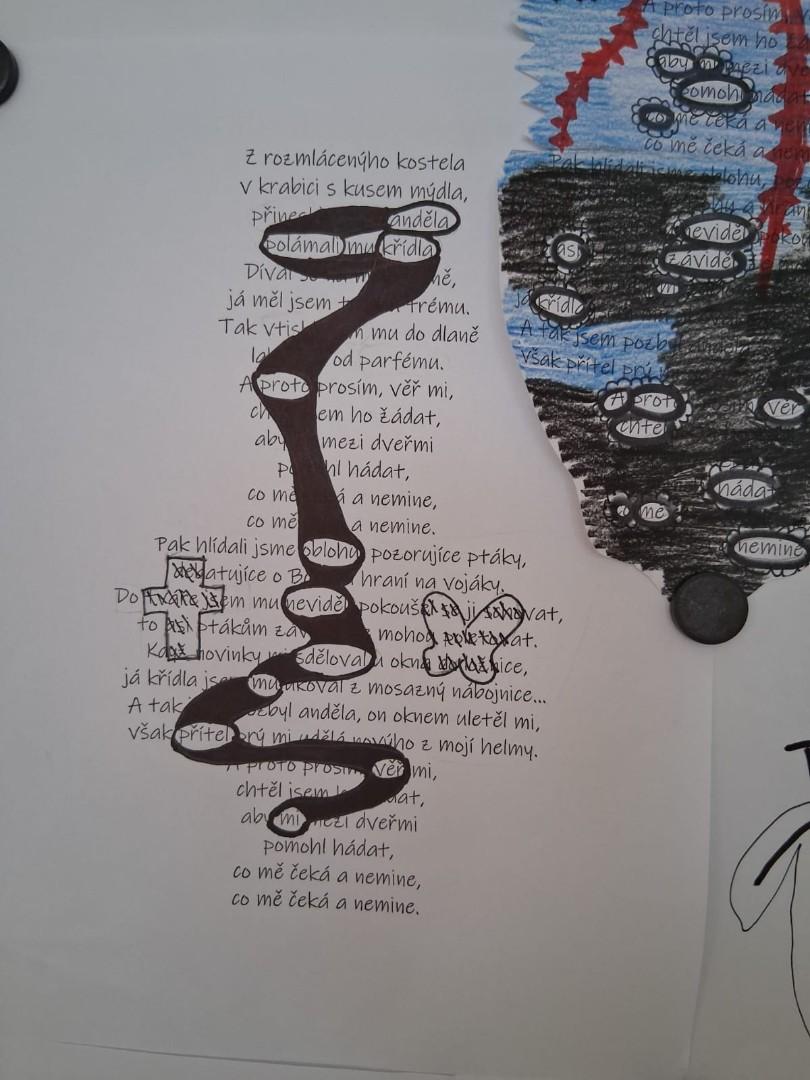 Z rozmlácenýho kostela
v krabici s kusem mýdla,
anděla
polámali mu křídla
já měl jsem trému.
Tak mu do dlaně
od parfému.
A proto prosím, věř mi,
ho žádat,
aby mezi dveřmi
hádat,
co mě a nemine,
co mě a nemine.
Pak hlídali jsme oblohu pozorujíce ptáky,
o hraní na vojáky.
Do jsem mu neviděl pokoušel ji
to ptákům mohou
novinky mi sděloval u okna
já křídla jsem mu z mosazný nábojnice...
A tak anděla, on oknem uletěl mi,
však přítel prý mi udělá novýho z mojí helmy.
A proto prosím věř mi,
chtěl jsem
aby mi mezi dveřmi
pomohl hádat,
co mě čeká a nemine,
co mě čeká a nemine.
A proto prosím,
chtěl jsem ho
aby mi mezi
pomohl hádat
co mě čeká a
co mě čeká a
Pak hlídali jsme oblohu,
neviděl
asi závidě
mu
já křídla
A tak jsem pozbyl anděla,
však přítel prý
A proto věř
chtěl
hádat
co mě
nemine